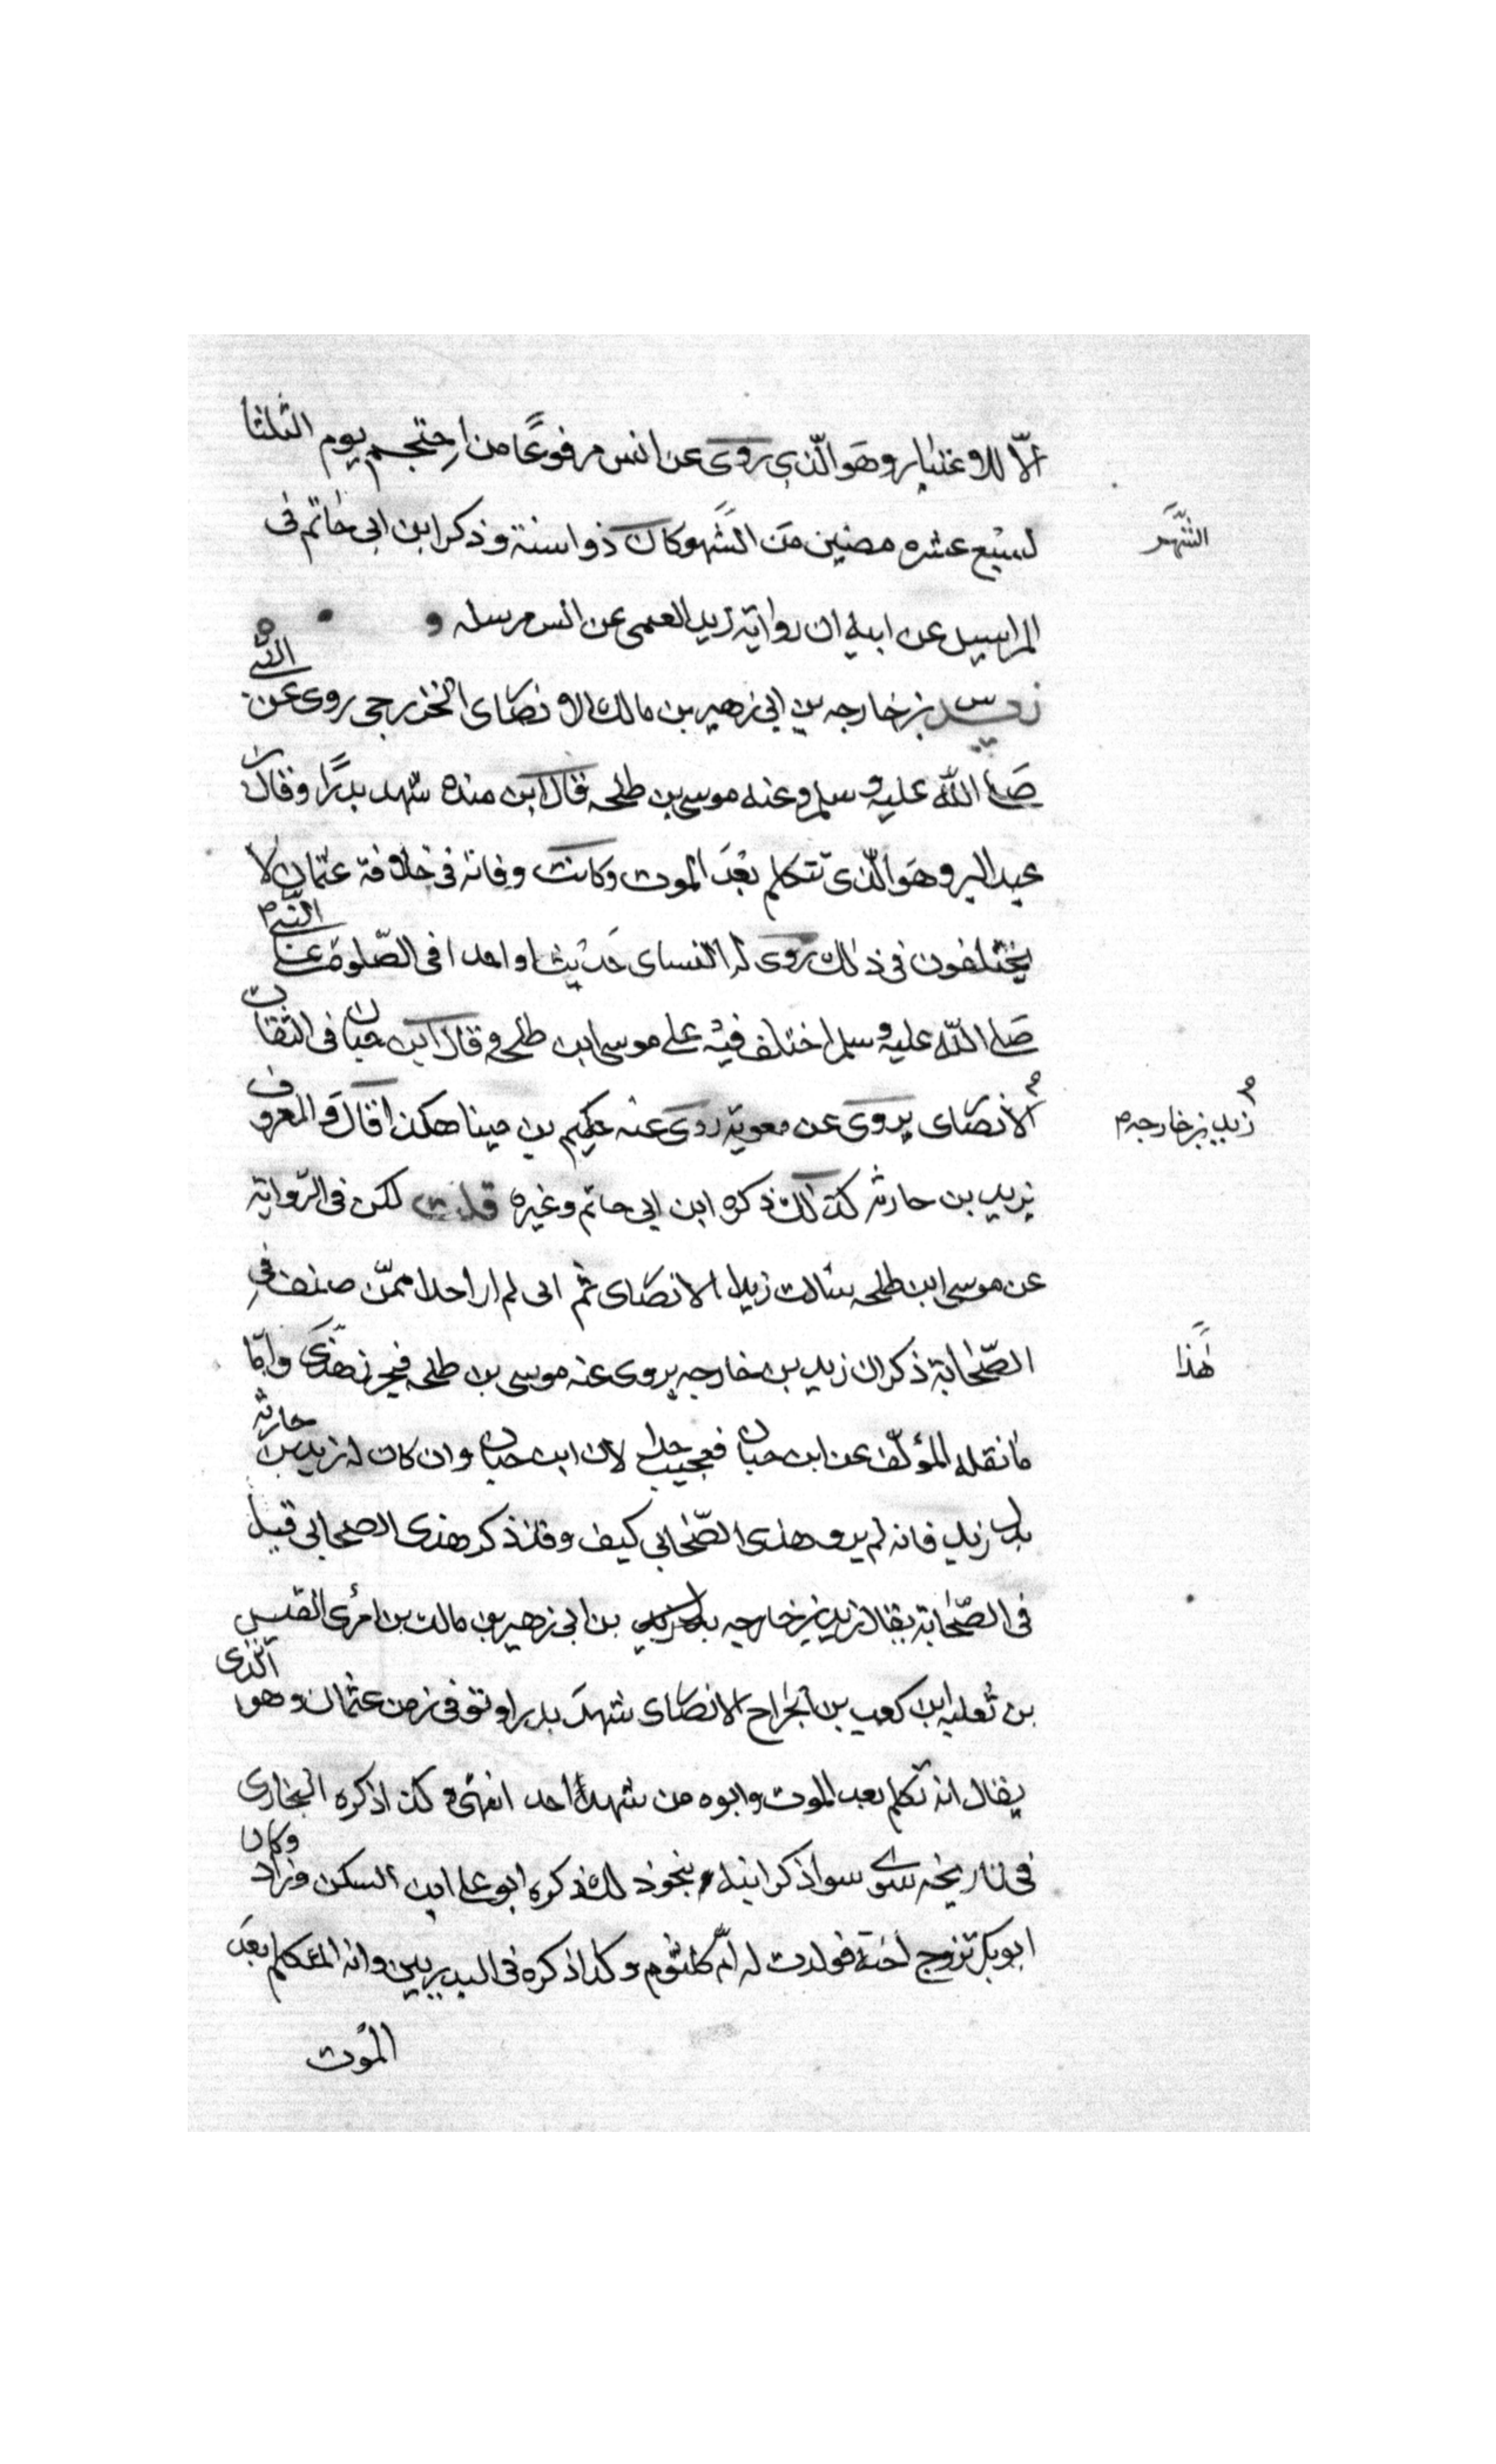 الّا للاعتبار وهو الّذى روى عن انس مرفوعًا من احتجم يوم الثلثا
لسبع عشره مضين من الشهر وكان ذواسنة وذكر ابن ابى حاتم فى
الشهر
المراسيل عن ابيه ان رواية زيد العمى عن انس مرسله
زيد بن خارجه بن ابى زهير بن مالك الانصاى الخزرجى روى عن النبى
صلى الله عليه وسلم وعنه موسى بن طلحه قال ابن منده شهد بدرًا وقال ابن
عبد البر وهو الّذى تتكلم بعد الموت وكانت وفاته فى خلافة عثمان لا
يختلفون فى ذلك روى له النساى حديثا واحدا فى الصّلوة على النبى
صلى الله عليه وسلم اختلف فيه على موسى ابن طلحه وقال ابن حبان فى الثقات
زيد بن خارجه
الانصاى يروى عن معوية روى عنه حكيم بن مينا هكذا قال والمعروف
يزيد بن حارثه كذلك ذكره ابن ابى حاتم وغيره قلت لكن فى الرّواية
عن موسى ابن طلحه سالت زيدا الانصاى ثم انى لم ار احدا ممّن صنف فى
الصّحابة ذكر ان زيد بن خارجه يروى عنه موسى بن طلحه فيحرر هذى وامّا
هذا
ما نقله المؤلّف عن ابن حبان فعجيب جدا لان ابن حبان وان كان له زيد بن حارثه
بدل زيد فانه لم يرو هذى الصّحابى كيف وقد ذكر هذى الصحابى قبل
فى الصّحابة يقال زيد بن خارجه بن ابى زهير بن مالك بن امرى القيس
بن ثعلبه ابن كعب بن الجراح الانصاى شهد بدرا وتوفى زمن عثمان وهو الّذى
يقال انه تكلم بعد الموت وابوه من شهدا احد انتهى وكذا ذكره البخارى
فى تاريخه سوى سوا ذكر ابيه بنحو ذلك ذكره ابو على ابن السكن وزاد وكان
ابو بكر تزوج اخته فولدت له امّ كلثوم وكذا ذكره فى البدريين وانه المتكلم بعد
الموت